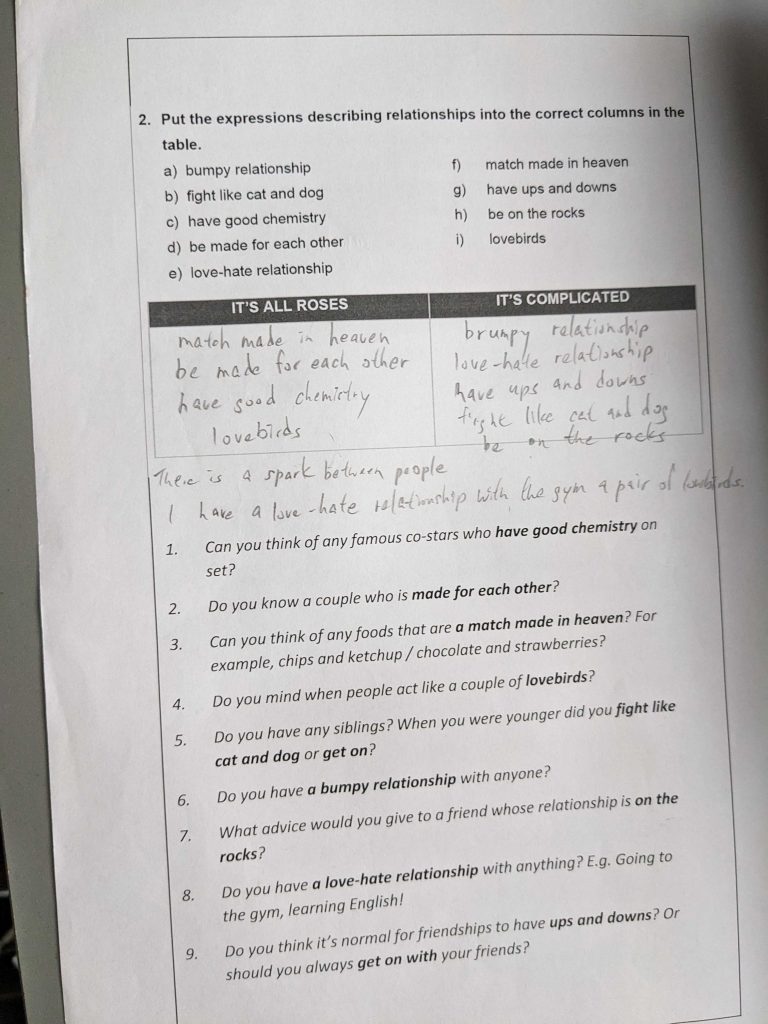 2. Put the expressions describing relationships into the correct columns in the
table.
a) bumpy relationship
b) fight like cat and dog
c) have good chemistry
d) be made for each other
e) love-hate relationship
f) match made in heaven
g) have ups and downs
h) be on the rocks
i) lovebirds
IT'S ALL ROSES
match made in heaven
be made for each other
have good chemistry
lovebirds
IT'S COMPLICATED
brumpy relationship
love-hate relationship
have ups and downs
fight like cat and dog
be on the rocks
There is a spark between people
I have a love-hate relationship with the gym a pair of lovebirds.
1. Can you think of any famous co-stars who have good chemistry on
set?
2. Do you know a couple who is made for each other?
3. Can you think of any foods that are a match made in heaven? For
example, chips and ketchup / chocolate and strawberries?
4. Do you mind when people act like a couple of lovebirds?
5. Do you have any siblings? When you were younger did you fight like
cat and dog or get on?
6. Do you have a bumpy relationship with anyone?
7. What advice would you give to a friend whose relationship is on the
rocks?
8. Do you have a love-hate relationship with anything? E.g. Going to
the gym, learning English!
9. Do you think it's normal for friendships to have ups and downs? Or
should you always get on with your friends?